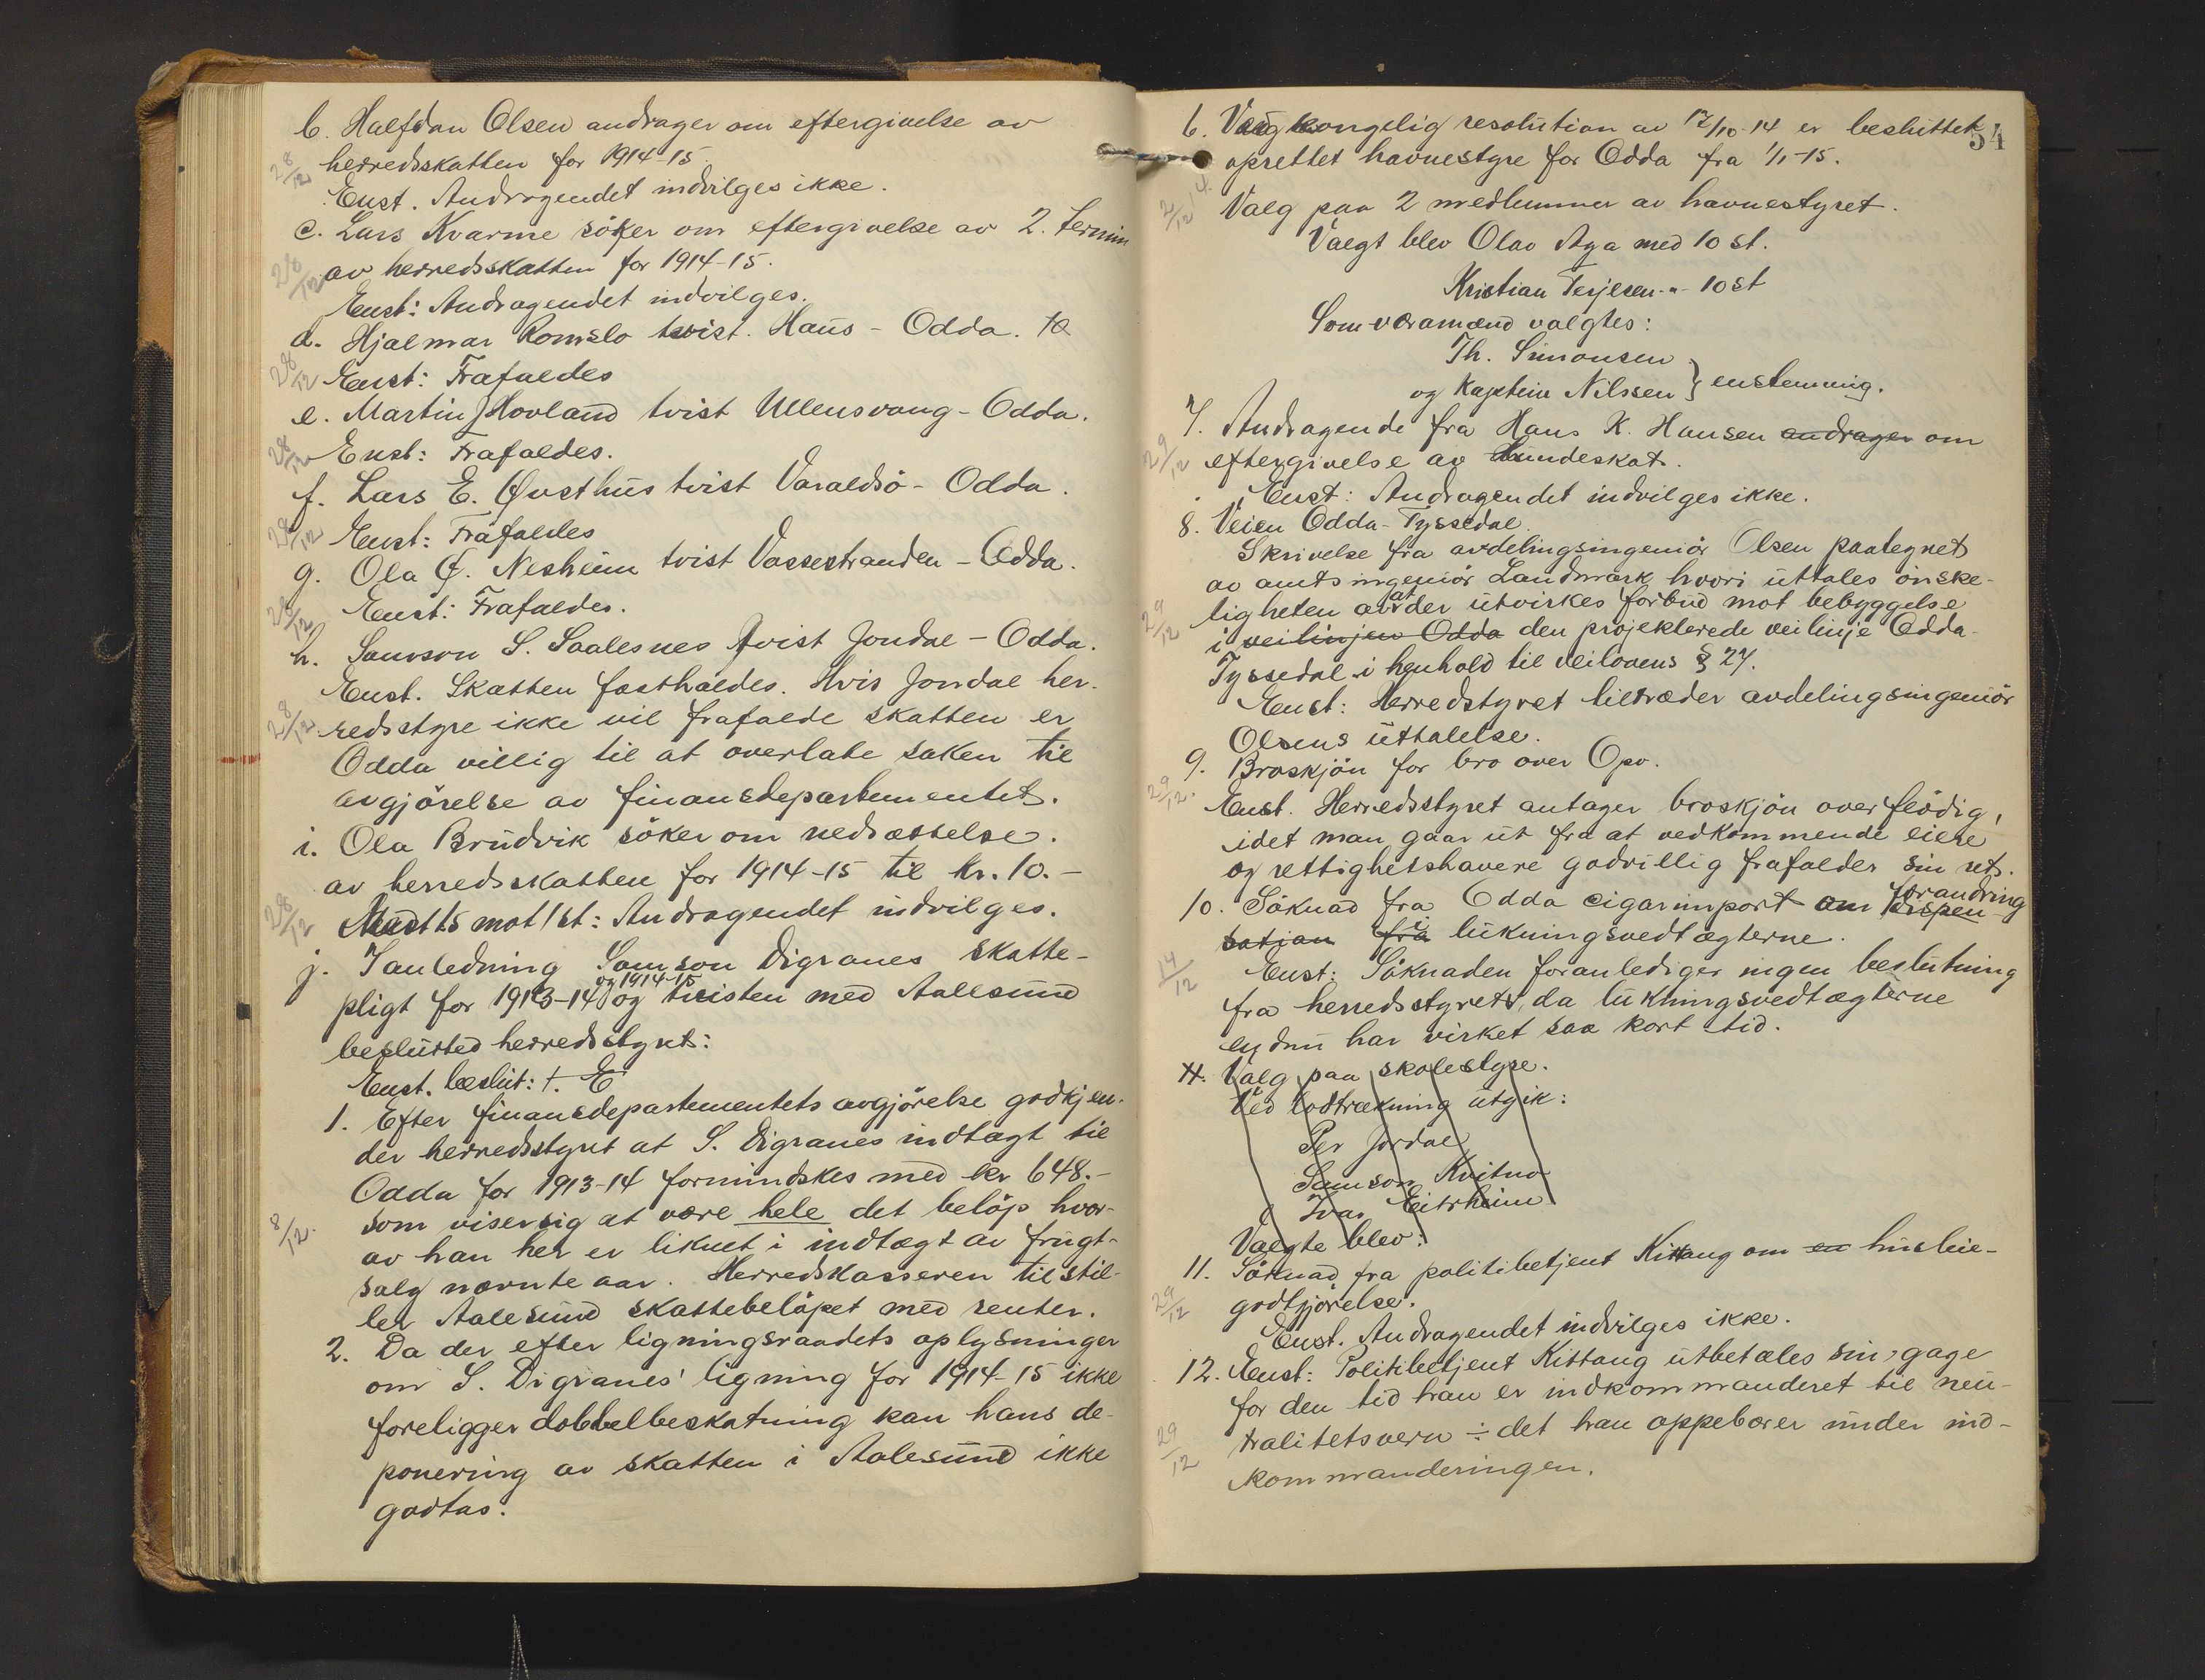 b. Halfdan Olsen andrager om eftergivelse av
28/12 herredsskatten for 1914-15
Enst. Andragendet indvilges ikke.
c. Lars Kvarme söker om eftergivelse av 2. termin
28/12 av herredsskatten for 1914-15.
Enst: Andragendet indvilges.
d. Hjalmar Romslo tvist. Haus - Odda.
28/12 Enst: Frafaldes
e. Martin Hovland tvist Ullensvang - Odda.
28/12 Enst: Frafaldes.
f. Lars E. Qvsthus tvist Varaldsö - Odda.
28/12 Enst: Frafaldes
g. Ola Ø. Nesheim tvist Vossestranden - Odda.
28/12 Enst: Frafaldes.
h. Samson S. Saalesnes tvist Jondal - Odda.
Enst. Skatten fastholdes. Hvis Jondal her-
28/12 redsstyre ikke vil frafalde skatten er
Odda villig til at overlate saken til
avgjörelse av finansdepartementet.
i. Ola Brudvik söker om nedsættelse.
av herredsskatten for 1914-15 til kr. 10.-
28/12 Med 15 mot 1 st: Andragendet indvilges.
j. I anledning Samson Digranes skatte-
og 1914-15
pligt for 1913-14 og tvisten med Aalesund
beslutted herredsstyret:
Enst. beslut: †. E
1. Efter finansdepartementets avgjörelse godkjen-
der herredsstyret at S. Digranes indtægt til
Odda for 1913-14 formindskes med kr 648.-
8/12. som viser sig at være hele det belöp hvor-
av han her er liknet i indtægt av frugt-
salg nævnte aar. Herredskasseren tilstil-
ler Aalesund skattebelöpet med renter.
2. Da der efter ligningsraadets oplysninger
om S. Digranes' ligning for 1914-15 ikke
foreligger dobbelbeskatning kan hans de-
ponering av skatten i Aalesund ikke
godtas.
54
6. Ved kongelig resolution av 17/10-14 er besluttet
oprettet havnestyre for Odda fra 1/1-15.
2/12 14. Valg paa 2 medlemmer av havnestyret.
Valgt blev Olav Aga med 10 st.
Kristian Terjesen -"- 10 st
Som varamænd valgtes:
Th. Simonsen
og Kaptein Nilssen } enstemmig.
7. Andragende fra Hans K. Hansen andrager om
29/12 eftergivelse av hundeskat.
Enst: Andragendet indvilges ikke.
8. Veien Odda - Tyssedal.
Skrivelse fra avdelingsingeniör Olsen paategnet
av amtsingeniör Landmark hvori uttales önske-
at
29/12 ligheten av der utvirkes forbud mot bebyggelse
i veilinjen Odda den projekterede veilinje Odda-
Tyssedal i henhold til veilovens § 27.
Enst: Herredstyret tiltræder avdelingsingeniör
Olsens uttalelse.
9. Broskjön for bro over Opo.
29/12. Enst. Herredsstyret antager broskjön overflödig,
idet man gaar ut fra at vedkommende eiere
og rettighetshavere godvillig frafalder sin ret.
forandring
10. Söknad fra Odda cigarimport om dispen-
i
sation fra lukningsvedtægterne.
14/12 Enst: Söknaden foranlediger ingen beslutning
fra herredsstyret, da lukningsvedtægterne
endnu har virket saa kort tid.
11. Valg paa skolestyre.
Ved lodtrækning utgik:
Per Jordal
Samson Kvitno
Ivar Eitrheim
Valgte blev:
11. Söknad fra politibetjent Kittang om en husleie-
29/12 godtgjörelse.
Enst. Andragendet indvilges ikke.
12. Enst: Politibetjent Kittang utbetales sin gage
for den tid han er indkommanderet til neu-
29/12 tralitetsvern ÷ det han oppebærer under ind-
kommanderingen.